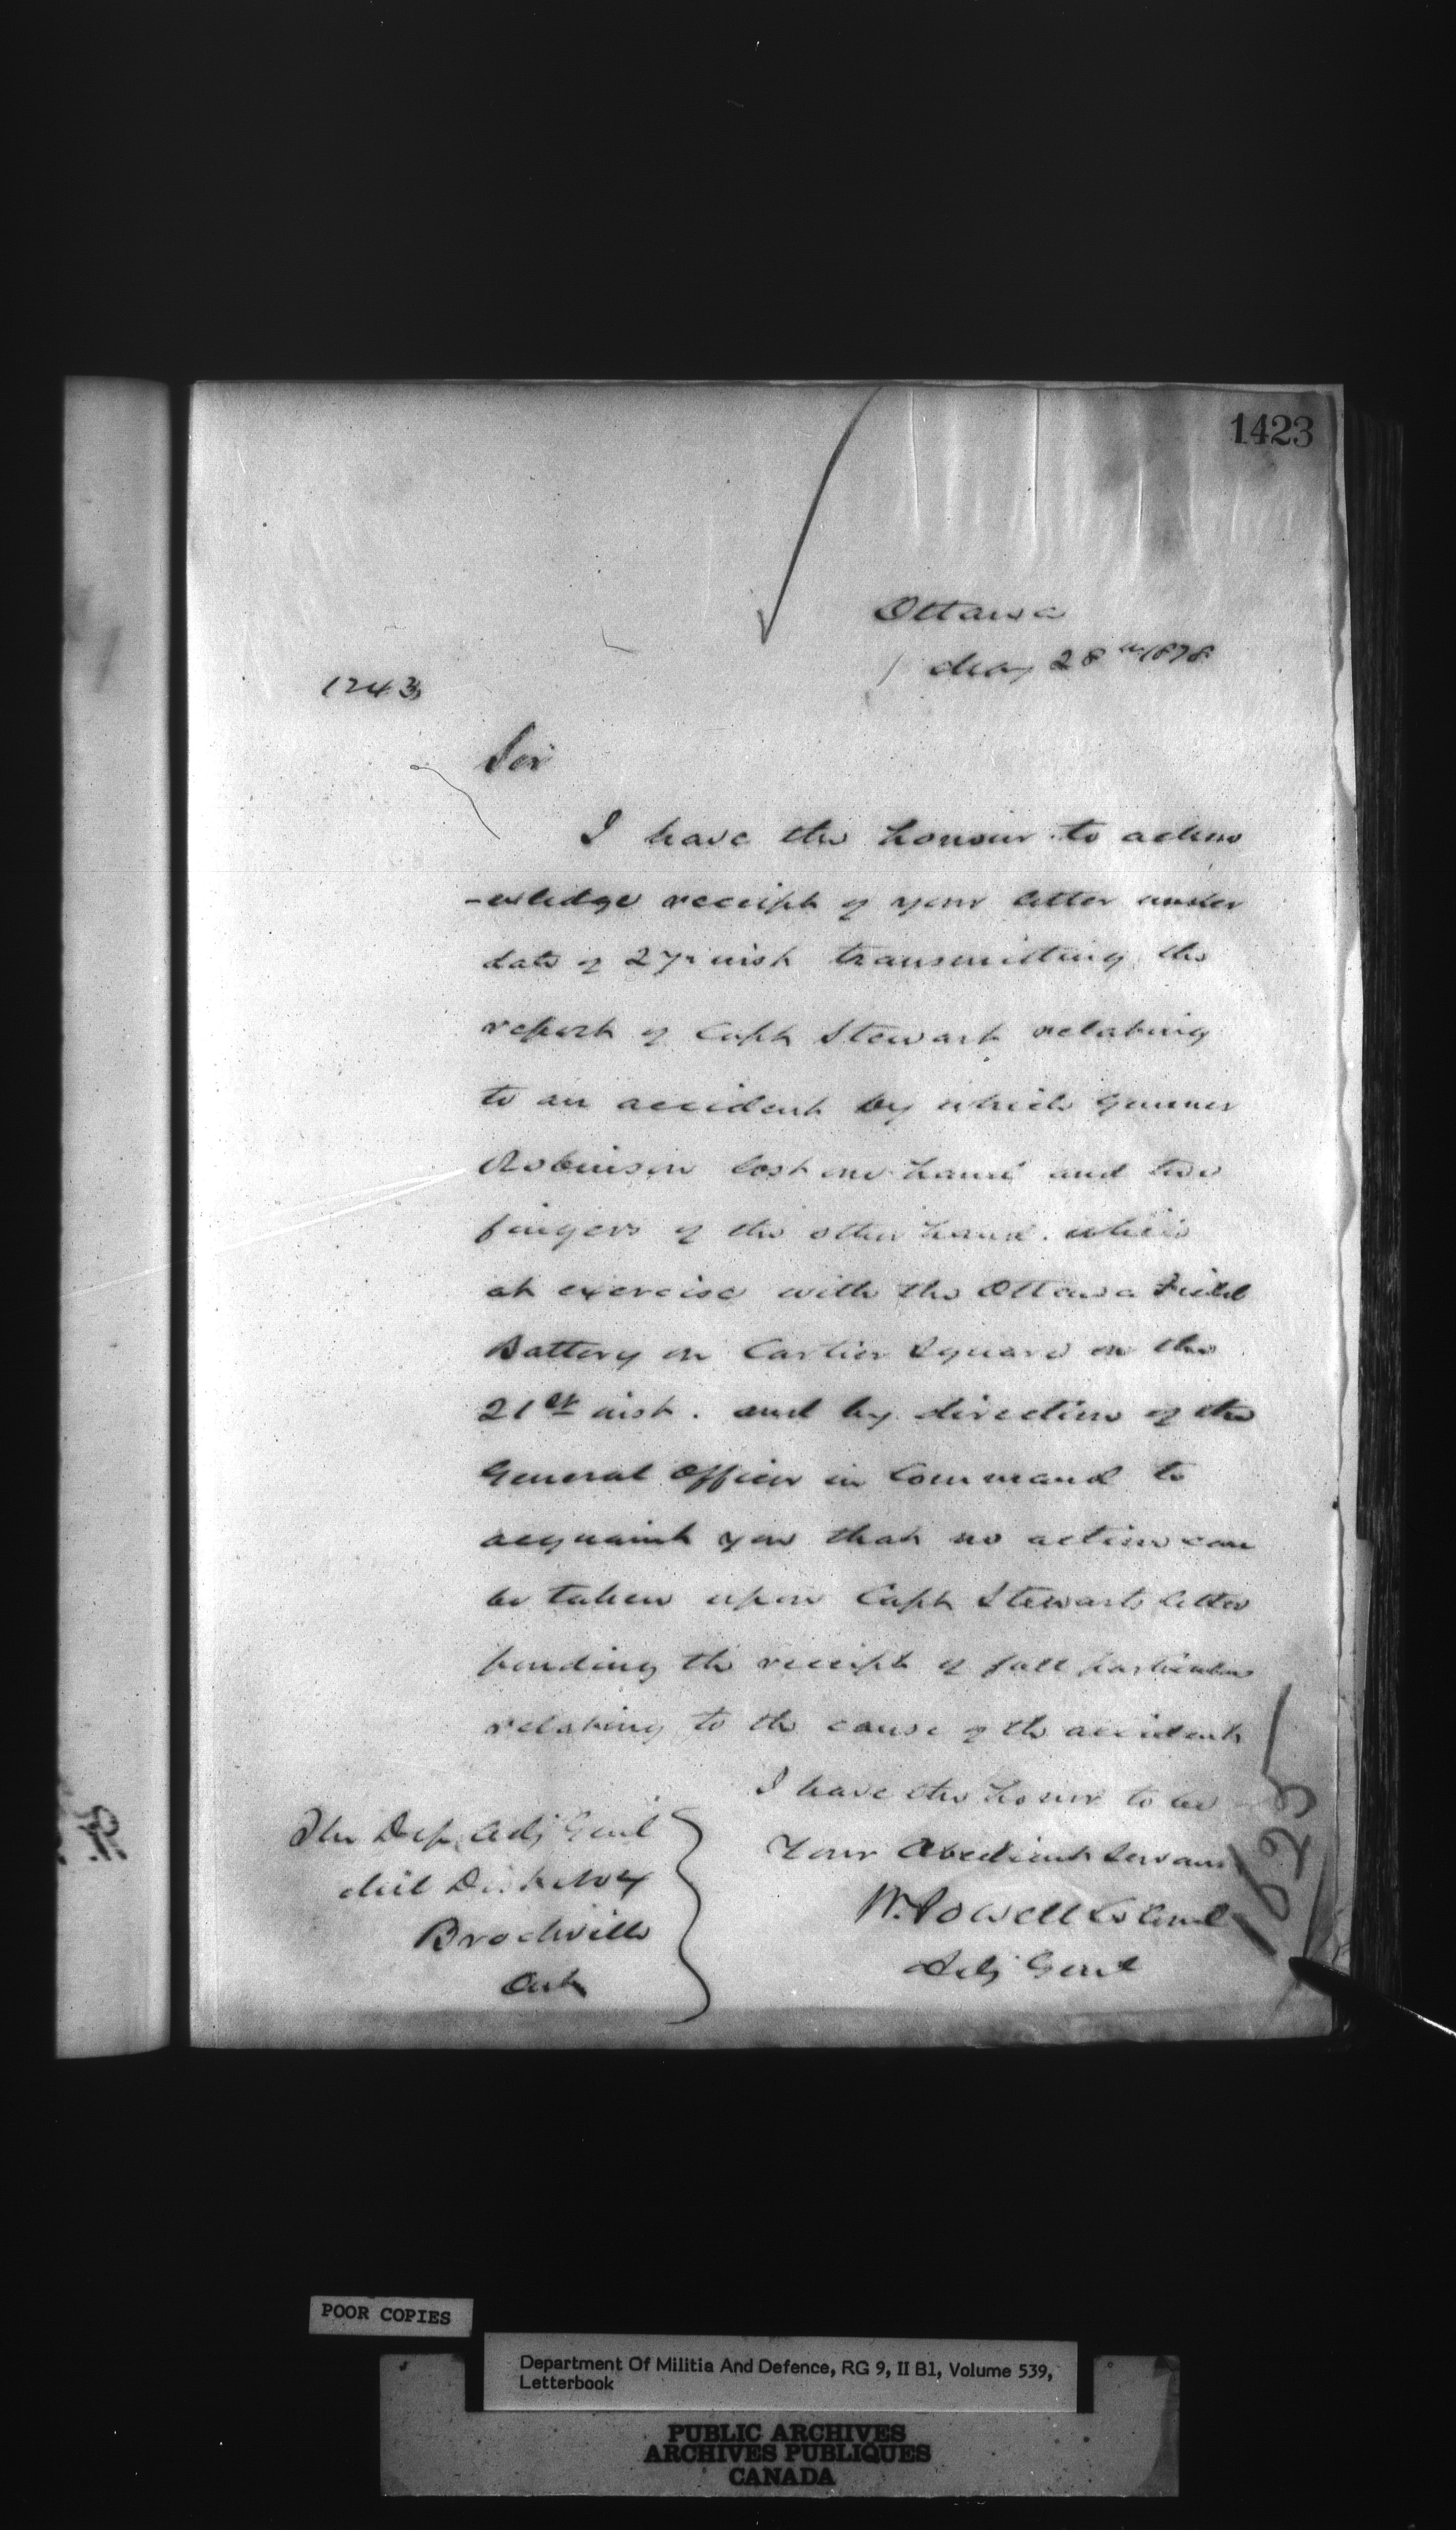 1423
Ottawa
May 28th 1878
1243
Sir
I have the honour to ackno
-wledge receipt of your letter under
date of 27th inst transmitting the
report of Capt Stewart relating
to an accident by which Gunner
Robinson lost one hand and two
fingers of the other hand. while
at exercise with the Ottawa Field
Battery on Cartier Square on the
21st inst. and by direction of the
General Officer in Command to
acquaint you that no action can
be taken upon Capt Stewarts letter
pending the receipt of full particulars
relating to the cause of the accident
I have the honor to be
Your Obedient Servant
W. Powell Colonel
Adj Genl
The Dep. Adj Genl
Mil Dist No 4
Brockville
Ont
1825
POOR COPIES
Department Of Militia And Defence, RG 9, II B1, Volume 539,
Letterbook
PUBLIC ARCHIVES
ARCHIVES PUBLIQUES
CANADA